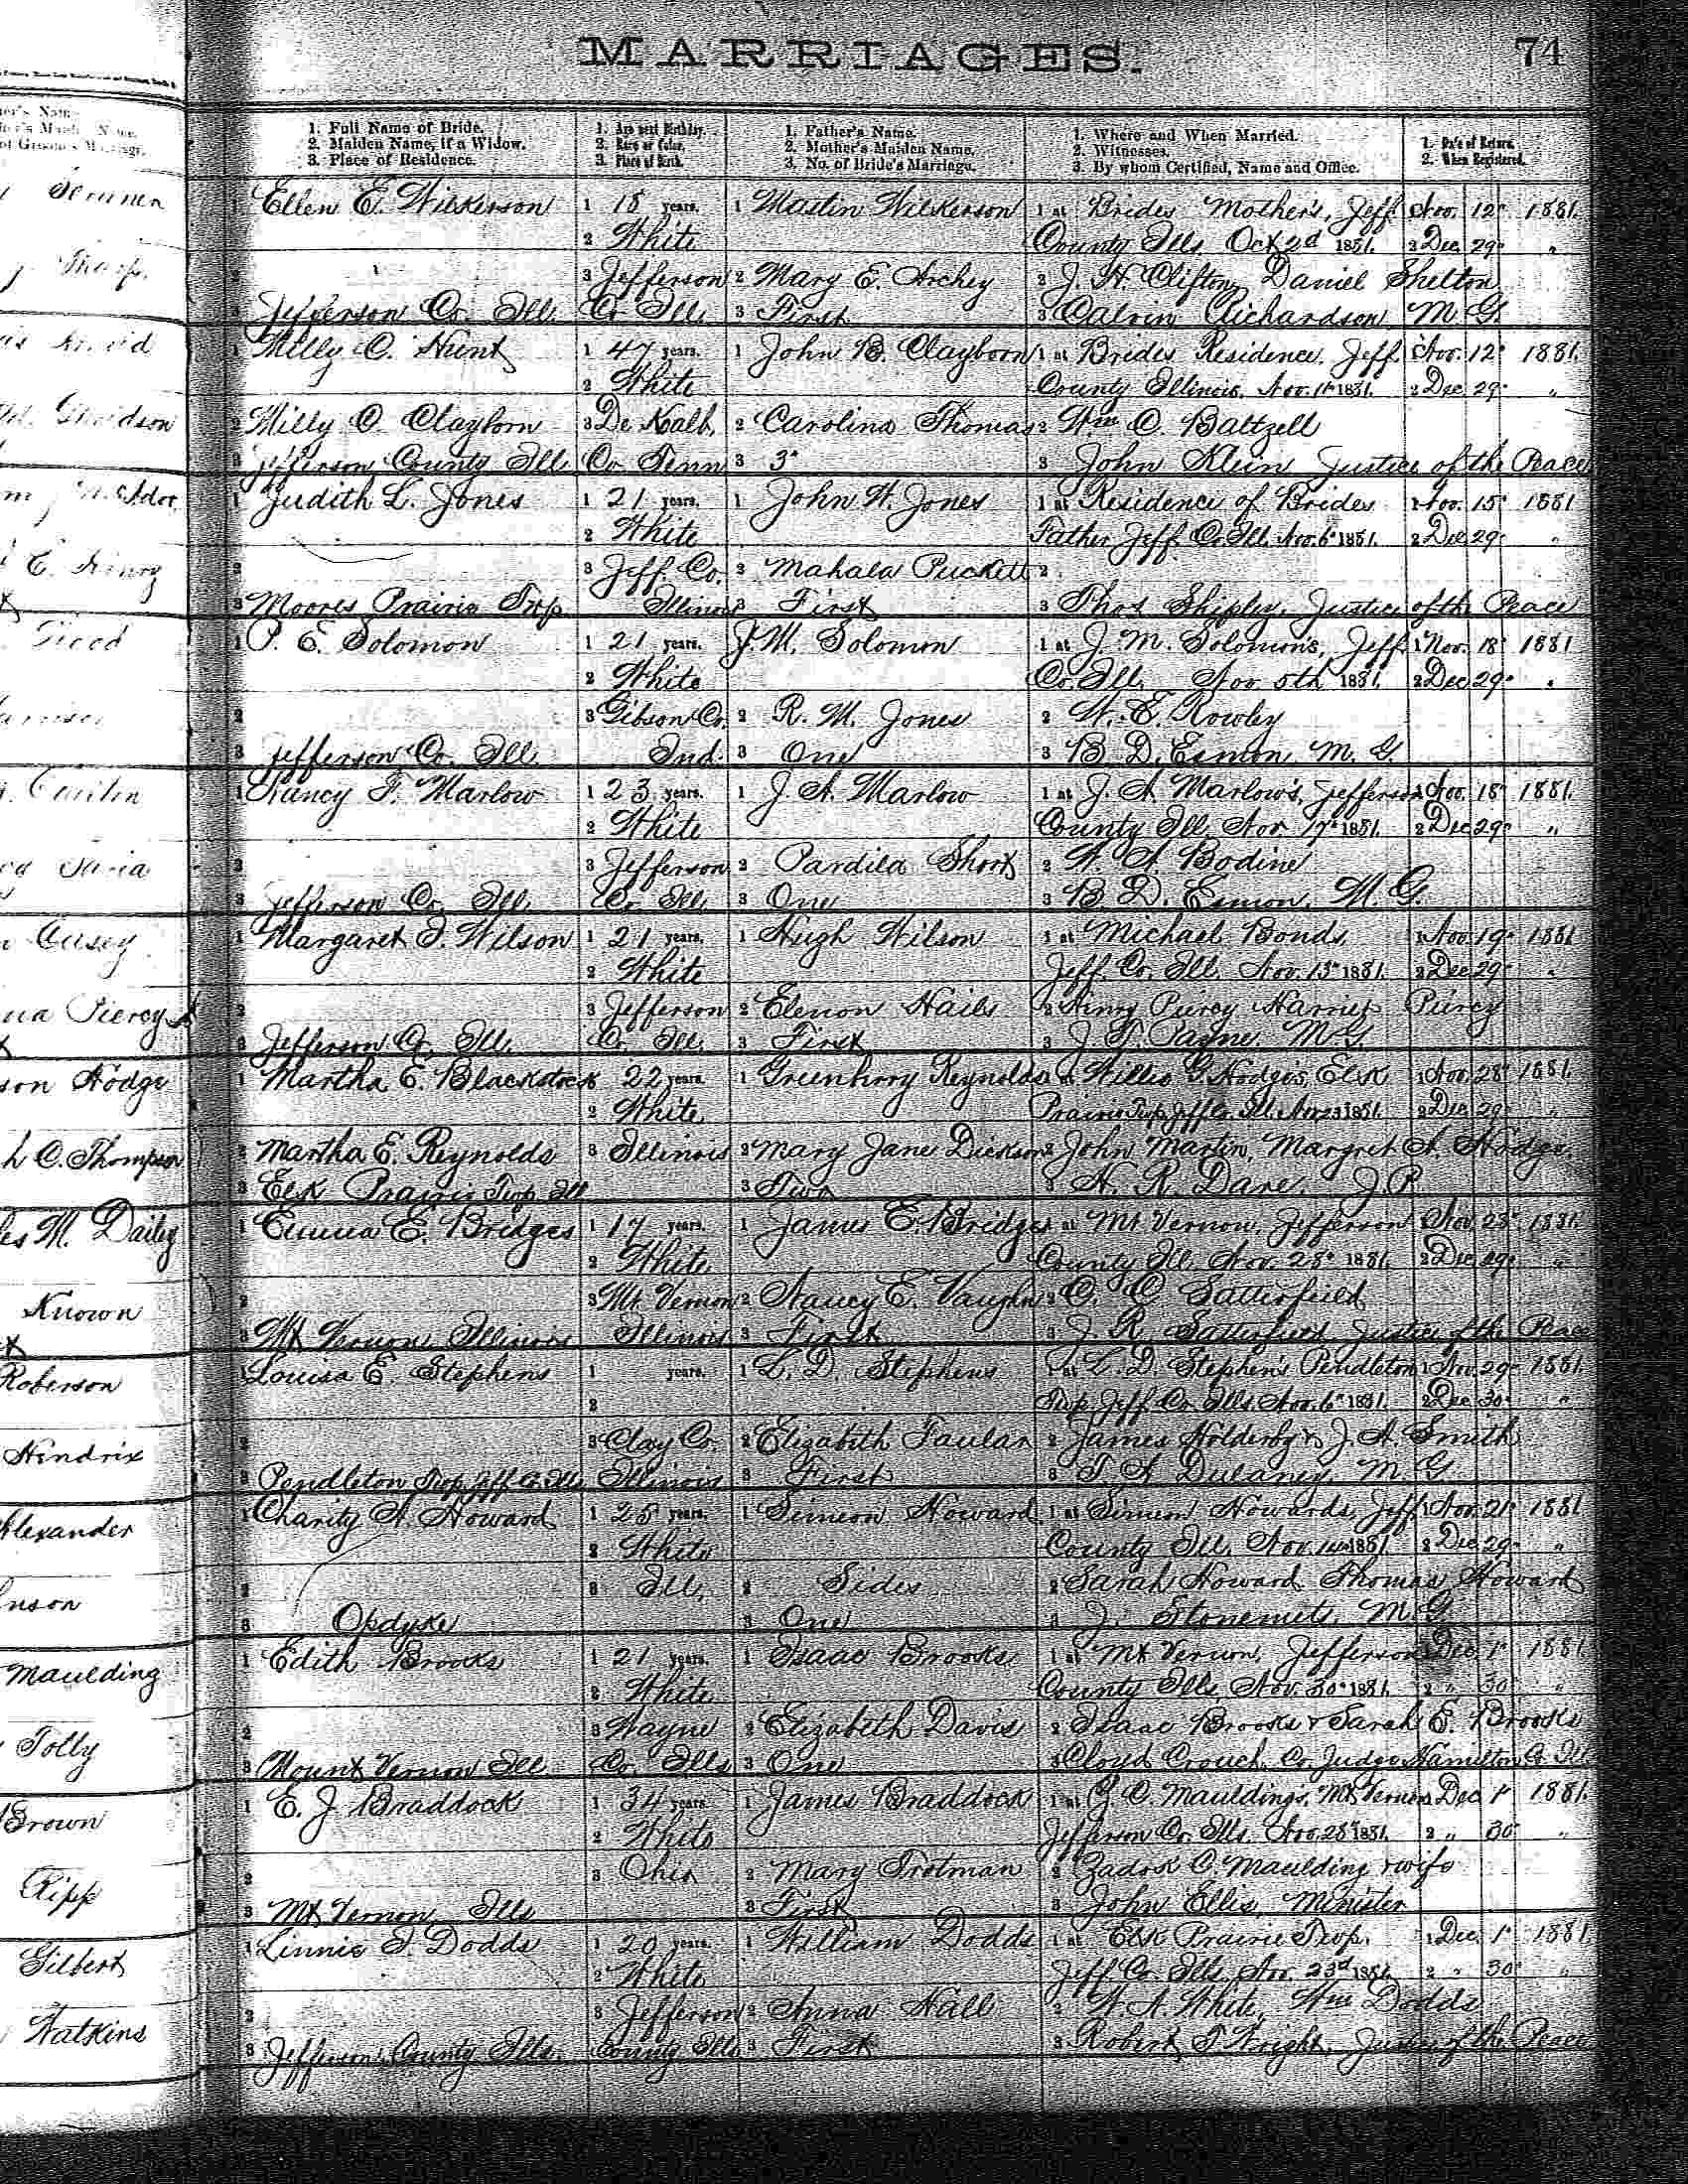 MARRIAGES. 74
1. Full Name of Bride.
2. Maiden Name, if a Widow.
3. Place of Residence.
1. Age next Birthday.
2. Race or Color.
3. Place of Birth.
1. Father's Name.
2. Mother's Maiden Name.
3. No. of Bride's Marriage.
1. Where and When Married.
2. Witnesses.
3. By whom Certified, Name and Office.
1. Date of Return.
2. When Registered.
1 Ellen E. Wilkerson 1 18 years. 1 Martin Wilkerson 1 at Brides Mother's, Jeff 1 Nov. 12 1881.
2 White County Ills. Oct 2d 1881. 2 Dec. 29 "
2 3 Jefferson 2 Mary E. Archey 2 J. H. Clifton, Daniel Shelton
3 Jefferson Co. Ill. Co. Ill. 3 First 3 Calvin Richardson M. G.
1 Milly C. Hunt 1 47 years. 1 John B. Clayborn 1 at Brides Residence, Jeff 1 Nov. 12 1881.
2 White County Illinois, Nov. 1881. 2 Dec 29 "
2 Milly C. Clayborn 3 De Kalb, 2 Carolina Thomas 2 Wm C. Baltzell
3 Jefferson County Ill. Co Tenn 3 3 3 John Klein Justice of the Peace
1 Judith L. Jones 1 21 years. 1 John W. Jones 1 at Residence of Brides 1 Nov. 15 1881
2 White Father Jeff. Co. Ill. Nov. 6 1881. 2 Dec 29 "
2 3 Jeff. Co. 2 Mahala Puckett 2
3 Moores Prairie Twp. Illinois 3 First 3 Thos Shipley, Justice of the Peace
1 P. E. Solomon 1 21 years. 1 J. M. Solomon 1 at J. M. Solomon's, Jeff 1 Nov. 18 1881
2 White Co. Ill. Nov 5th 1881. 2 Dec 29 "
2 3 Gibson Co. 2 R. M. Jones 2 W. E. Rowley
3 Jefferson Co. Ill. Ind. 3 One 3 B. D. Esmon, M. G.
1 Nancy F. Marlow 1 23 years. 1 J. A. Marlow 1 at J. A. Marlow's, Jefferson 1 Nov. 18 1881.
2 White County Ill. Nov 17 1881. 2 Dec 29 "
2 3 Jefferson 2 Pardila Short 2 Bodine
3 Jefferson Co. Ill. Co. Ill. 3 One 3 B. D. Esmon, M. G.
1 Margaret J. Wilson 1 21 years. 1 Hugh Wilson 1 at Michael Bonds, 1 Nov. 19 1881
2 White Jeff. Co. Ill. Nov. 13 1881. 2 Dec 29 "
2 3 Jefferson 2 Elenon Hails 2 Henry Piercy Harriet Piercy
3 Jefferson Co. Ill. Co. Ill. 3 First 3 J. T. Payne M. G.
1 Martha E. Blackstock 1 22 years. 1 Greenberry Reynolds 1 at Willis G. Hodges, Elk 1 Nov. 28 1881.
2 White Prairie Twp. Jeff Co. Ill. Nov 23 1881. 2 Dec 29 "
2 Martha E. Reynolds 3 Illinois 2 Mary Jane Dickson 2 John Martin, Margret A. Hodge.
3 Elk Prairie Twp. Ill 3 Two 3 H. R. Dare, J. P.
1 Emma E. Bridges 1 17 years. 1 James E. Bridges 1 at Mt. Vernon, Jefferson 1 Nov. 28 1881.
2 White County Ill. Nov. 23 1881. 2 Dec. 29 "
2 3 Mt. Vernon 2 Nancy E. Vaughn 2 C. C. Satterfield
3 Mt Vernon, Illinois Illinois 3 First 3 J. R. Satterfield Justice of the Peace
1 Louisa E. Stephens 1 years. 1 L. D. Stephens 1 at L. D. Stephen's Pendleton 1 Nov. 29 1881.
2 Twp. Jeff. Co. Ills. Nov. 6 1881. 2 Dec 30 "
2 3 Clay Co. 2 Elizabeth Faulan 2 James Holderby & J. A. Smith
3 Pendleton Twp. Jeff Co. Ills Illinois 3 First 3 T. A. Dulaney, M. G.
1 Charity A. Howard 1 25 years. 1 Simeon Howard 1 at Simeon Howards, Jeff 1 Nov. 21 1881
2 White County Ill. Nov. 1881. 2 Dec 29 "
2 3 Ill. 2 Sides 2 Sarah Howard Thomas Howard
3 Opdyke 3 One 3 J. Stonemets, M. G.
1 Edith Brooks 1 21 years. 1 Isaac Brooks 1 at Mt Vernon, Jefferson 1 Dec. 1 1881.
2 White County Ills. Nov. 30 1881. 2 " 30 "
2 3 Wayne 2 Elizabeth Davis 2 Isaac Brooks & Sarah E. Brooks
3 Mount Vernon Ill Co. Ills 3 One 3 Cloyd Crouch, Co. Judge Hamilton Co. Ill
1 E. J. Braddock 1 34 years. 1 James Braddock 1 at Z. C. Mauldings, Mt Vernon 1 Dec 1 1881.
2 White Jefferson Co. Ills. Nov. 28 1881. 2 " 30 "
2 3 Ohio 2 Mary Trotman 2 Zadok C. Maulding & wife
3 Mt Vernon Ills 3 First 3 John Ellis, Minister
1 Linnie J. Dodds 1 20 years. 1 William Dodds 1 at Elk Prairie Twp. 1 Dec. 1 1881.
2 White Jeff. Co. Ills. Nov. 23d 1881. 2 " 30 "
2 3 Jefferson 2 Anna Hall 2 W. A. White, Wm Dodds
3 Jefferson County Ills. County Ills 3 First 3 Robert T Wright, Justice of the Peace
Casey
Piercy
Hodge
C. Thompson
M. Dailey
Known
Roberson
Hendrix
Alexander
Maulding
Tolly
Brown
Ripp
Gilbert
Watkins